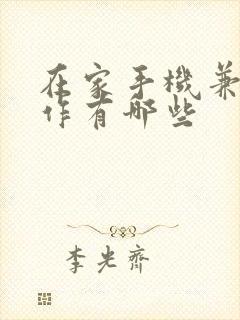 在家手機兼
作有哪些
李光齊